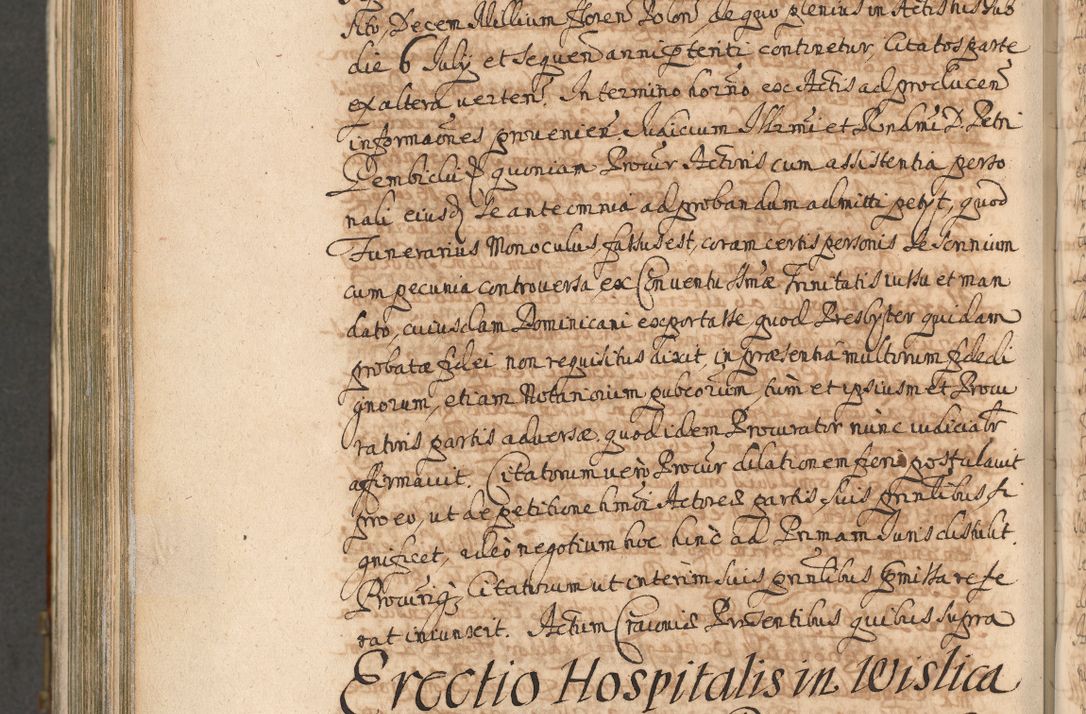 sito, Decem Millium floren Polon de quo plenius in Actis huius sub
die 6 July et sequen anni pteriti continetur, Citatos parte
ex altera verten. In termino horño ex Actis ad producen
informaões provenien Judicium Illrmi et Rendmi D. Petri
Gembicki quoniam Procur Actoris cum assistentia perso
nali eiusd se ante omnia ad probandum admitti petyt, quod
Funerarius Monoculus fassus est, coram certis personis se scrinium
cum pecunia controversa, ex Conventu Ssmæ Trinitatis iussu et man
dato, cuiusdam Dominicani exportasse, quod Presbyter quidam
probatæ fidei non requisitus dixit, in præsentia multorum fidedi
gnorum, etiam Notariorum pubcorum, tum et ipsiusmet Procu
ratoris partis adversæ, quod idem Procurator nunc iudicialr
affirmavit. Citatorum vero Procur dilationem fieri postulavit
pro eo, ut de petitione hmõi Actoreæ partis, suis prinlibus si
gnificet, adeo negotium hoc hinc ad Primam Juris distulit.
Procurīq; Citatorum ut interim suis prinlibus pmissa refe
rat iniunxit. Actum Cracoviæ Præsentibus quibus supra
Erectio Hospitalis in Wislica